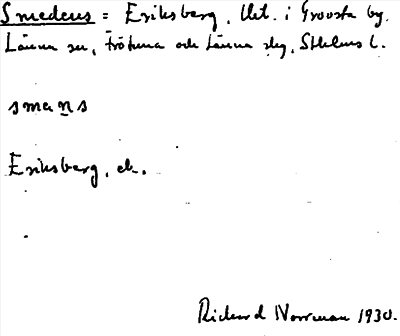 Smedens = Eriksberg, lht. i Grovsta by,
Länna sn, Frötuna och Länna slg, Sthlms l.
smans
Eriksberg, eh.
Richard Norrman 1930.